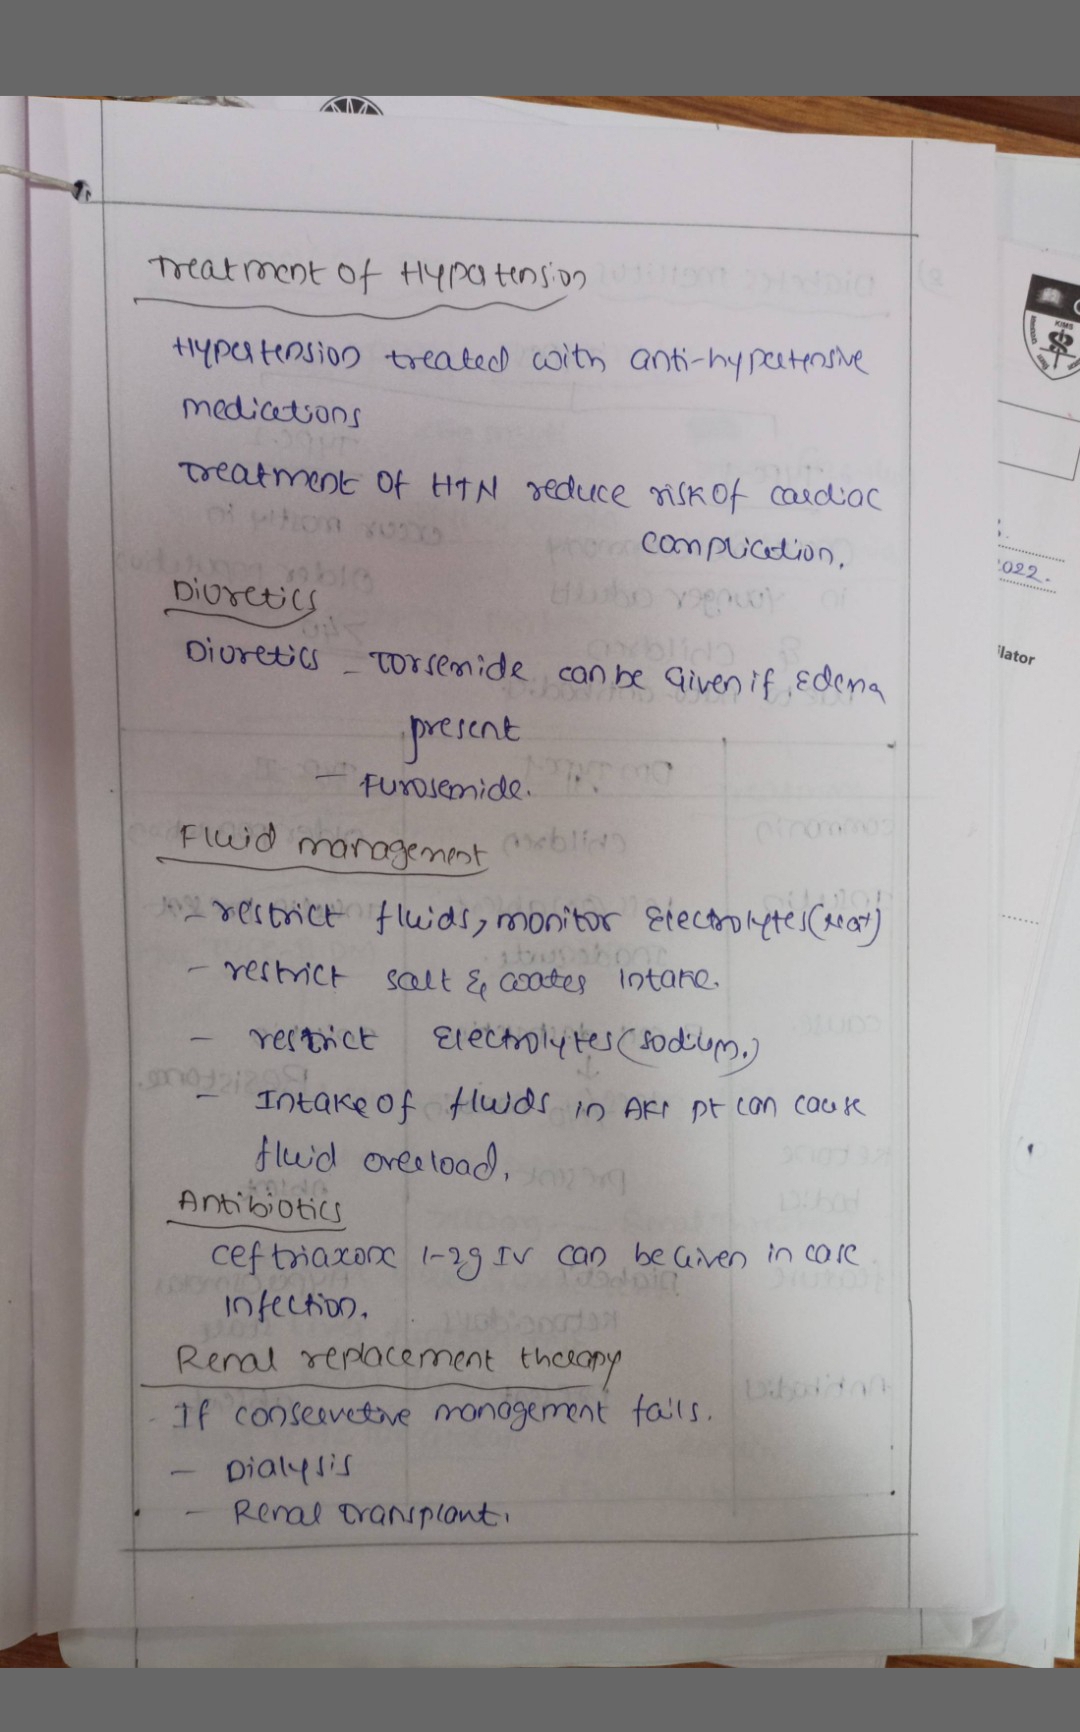 Treatment of Hypertension
Hypertension treated with anti-hypertensive
medications
Treatment of HTN reduce risk of cardiac
complication.
Diuretics
Diuretics - Torsemide can be Given if Edema
present
- Furosemide.
Fluid management
- restrict fluids, monitor Electrolytes (Na+)
- restrict salt & water intake.
- restrict Electrolytes (sodium.)
- Intake of fluids in AKI pt can cause
fluid overload.
Antibiotics
Ceftriaxone 1-2g IV can be Given in case
infection.
Renal replacement therapy
If conservetive management fails.
- Dialysis
- Renal Transplant.
KIMS
2022.
lator